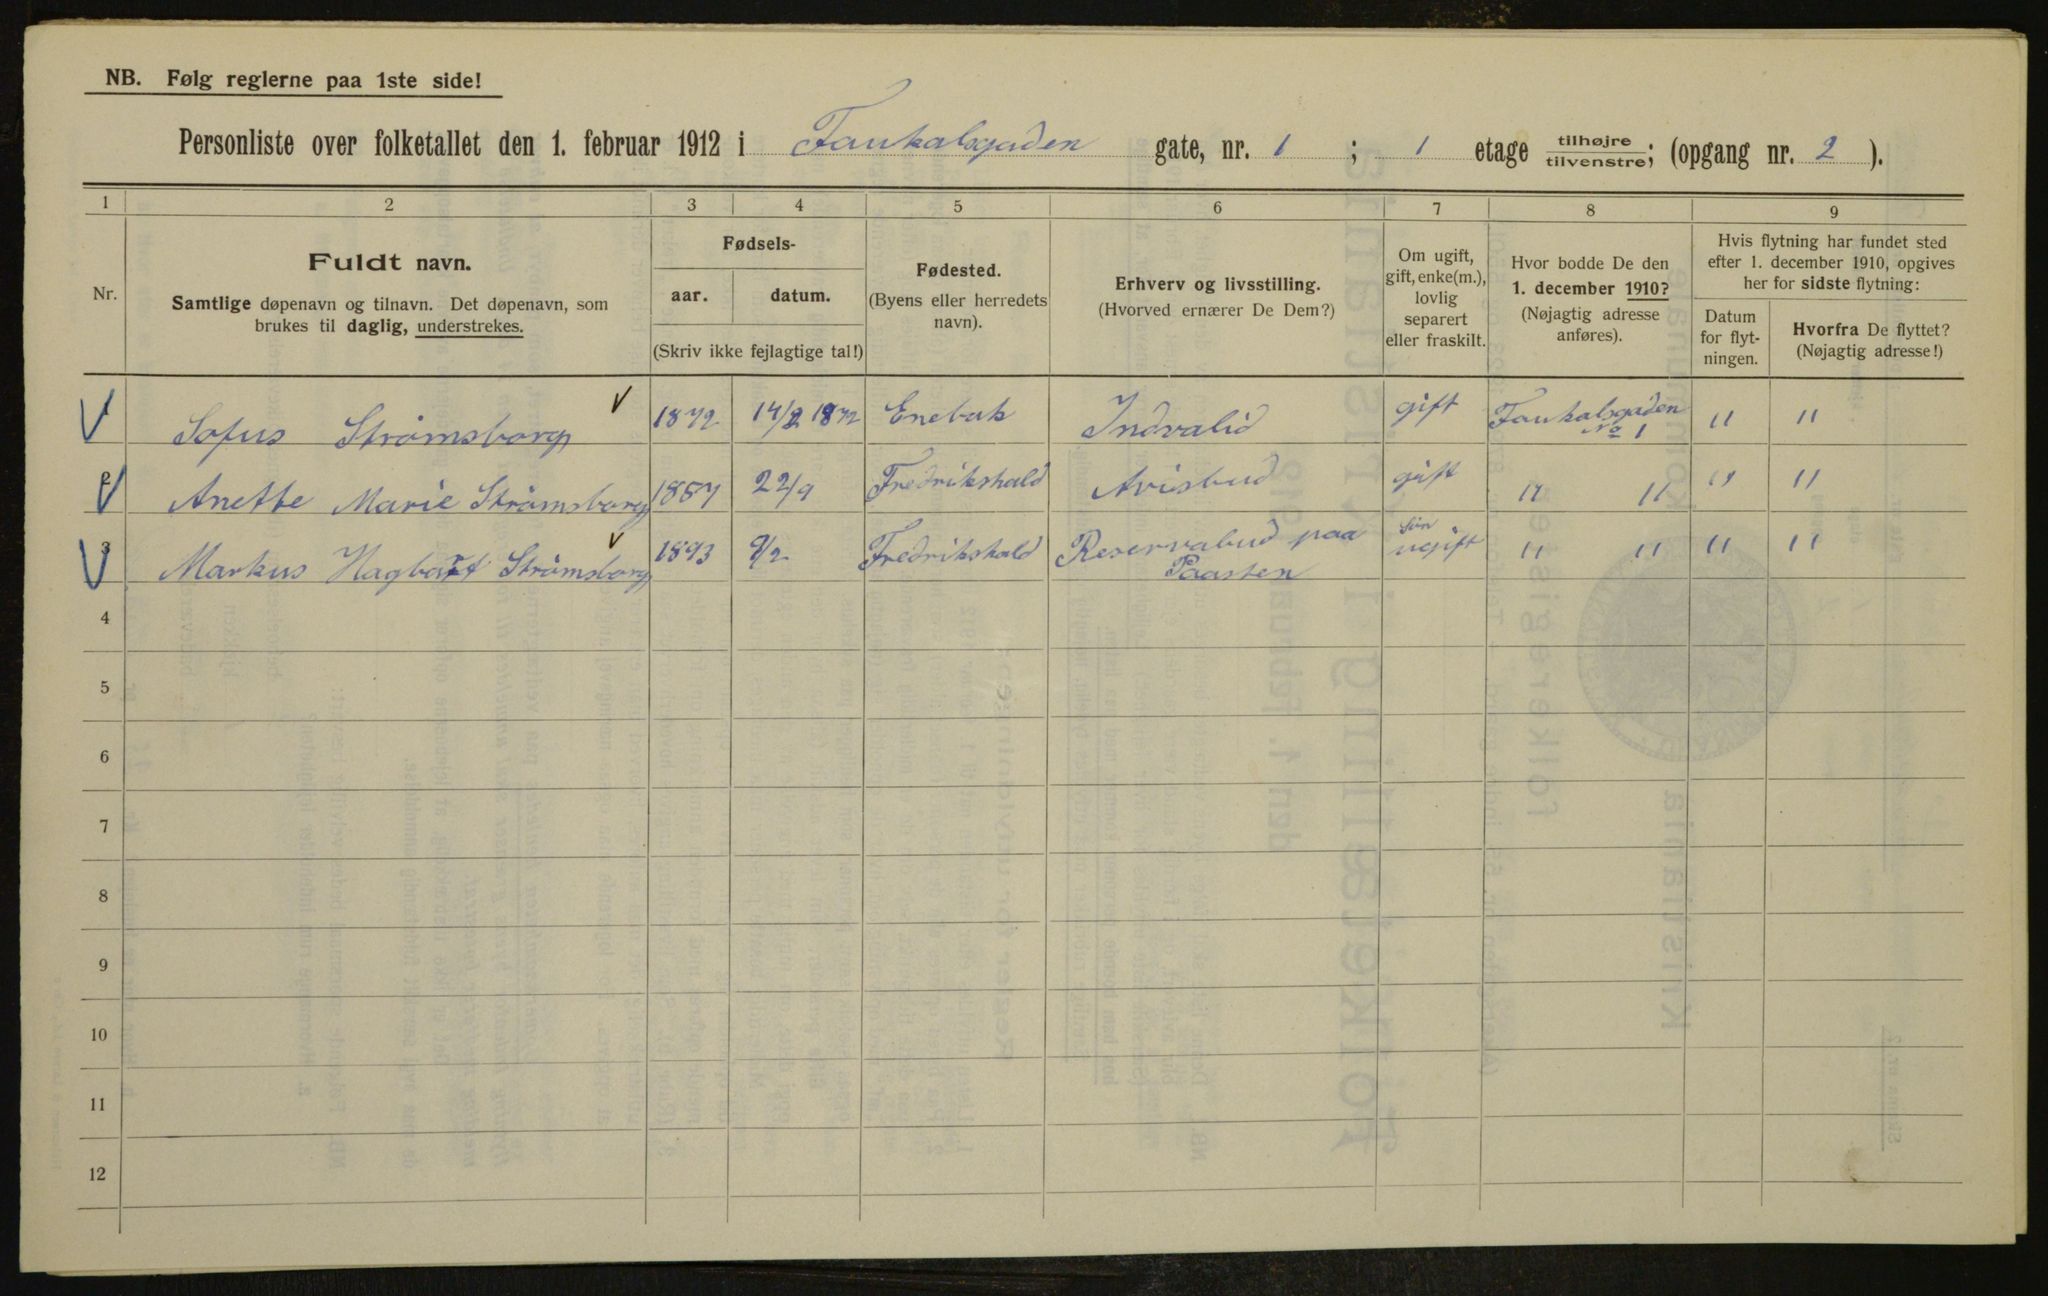 NB. Følg reglerne paa 1ste side!
Personliste over folketallet den 1. februar 1912 i Faukalsgaden gate, nr. 1 ; 1 etage tilhøjre tilvenstre; (opgang nr. 2 ).
1 2 3 4 5 6 7 8 9
Nr.
Fuldt navn.
Samtlige døpenavn og tilnavn. Det døpenavn, som
brukes til daglig, understrekes.
Fødsels-
aar. datum.
(Skriv ikke fejlagtige tal!)
Fødested.
(Byens eller herredets
navn).
Erhverv og livsstilling.
(Hvorved ernærer De Dem?)
Om ugift,
gift, enke(m.),
lovlig
separert
eller fraskilt.
Hvor bodde De den
1. december 1910?
(Nøjagtig adresse
anføres).
Hvis flytning har fundet sted
efter 1. december 1910, opgives
her for sidste flytning:
Datum
for flyt-
ningen.
Hvorfra De flyttet?
(Nøjagtig adresse!)
1 Sofus Strømsborg 1872 14/2 1872 Enebak Indvalid gift Faukalsgaden No 1 " "
2 Anette Marie Strømsborg 1857 22/9 Fredrikshald Avisbud gift " " " "
3 Markus Hagbart Strømsborg 1893 9/2 Fredrikshald Reservabud paa Paasten Søn ugift " " " "
4
5
6
7
8
9
10
11
12